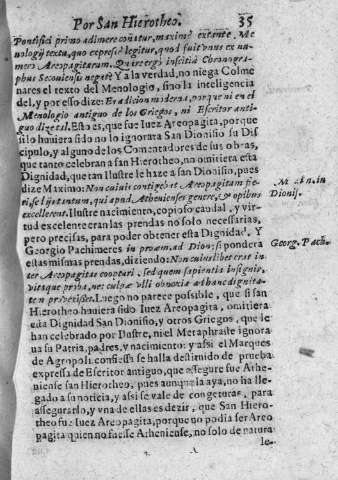 Por San Hierotheo. 35
Pontifici primo adimere coñatur, maximè extente Me
nologij textu, quo expresè legitur, quod fuit vnus ex nu-
mero Areopagitarum. Quirergo inscitia Chronogra-
phus Secouiensis negatè Y a la verdad, no niega Colme
nares el texto del Menologio, sino la inteligencia
del, y por esso dize: Erudicion moderna, porque ni en el
Menologio antiguo de los Griegos, ni Escritor anti-
guo dize tal. Esto es, que fue Iuez Areopagita, porque
si lo huuiera sido no lo ignorata San Dionisio su Dis
cipulo, y alguno de los Comentadores de sus obras,
que tanto celebran a san Hierotheo, no omitiera esta
Dignidad, que tan Ilustre le haze a san Dionisio, pues
dize Maximo: Non cuiuis contigebat Areopagitam fie-
ri, sed ijs tantum, qui apud Athenienses genere, & opibus
excellerent. Ilustre nacimiento, copioso caudal, y vir-
tud excelente eran las prendas no solo necessarias,
pero precisas, para poder obtener esta Dignidad. Y
Georgio Pachimeres in proœm. ad Dion; si pondera
estas mismas prendas, diziendo: Non cuius libet erat in
ter Areopagitas cooptari, sed quem sapientia insignir,
vitæque proba, nec culpæ vlli obnoxia ad hanc dignita-
tem prouexisset. Luego no parece possible, que si san
Hierotheo huuiera sido Iuez Areopagita, omitiera
esta Dignidad San Dionisio, y otros Griegos, que le
han celebrado por Ilustre, ni el Metaphraste ignora
ua su Patria, padres, y nacimiento: y assi el Marques
de Agropoli confiessa se halla destituido de prueba
expressa de Escritor antiguo, que assegure fue Athe
niense san Hierotheo, pues aunque la aya, no ha lle-
gado a su noticia, y assi se vale de congeturas, para
assegurarlo, y vna de ellas es dezir, que San Hiero-
theo fue Iuez Areopagita, porque no podia ser Areo
pagita quien no fuesse Atheniense, no solo de natura
le-
in
Dionis.
Georg. Pach.